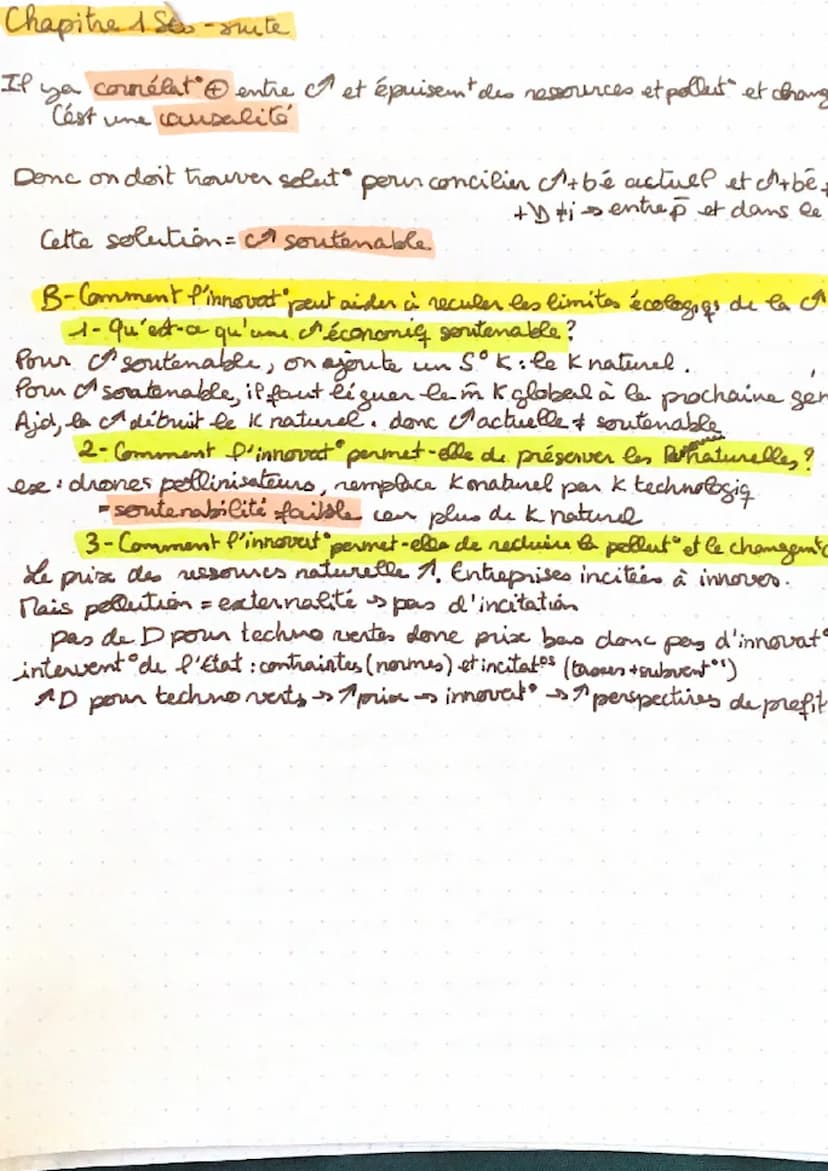 Chapitre 1 Ses - suite
Il y a corrélat° ⊕ entre C↗ et épuisemt des ressources et pollut° et chang
C'est une causalité
Donc on doit trouver solut° pour concilier C↗ + bê actuel et C↗ + bê
→ entre p̄ et dans le
Cette solution = C↗ soutenable
B- Comment l'innovat° peut aider à reculer les limites écologiqs de la C↗
1- Qu'est-ce qu'une C↗ économiq soutenable?
Pour C↗ soutenable, on ajoute un 5° K : le K naturel.
Pour C↗ soutenable, il faut léguer le m̂ K global à la prochaine gén
Ajd, la C↗ détruit le K naturel. donc C↗ actuelle ≠ soutenable
2- Comment l'innovat° permet-elle de préserver les naturelles?
ex : drones pollinisateurs, remplace K naturel par K technologiq
= soutenabilité faible car plus de K naturel
3- Comment l'innovat° permet-elle de reduire la pollut° et le changemt
Le prix des ressources naturelle ↗. Entreprises incitées à innover.
Mais pollution = externalité → pas d'incitation
pas de D pour techno vertes donc prix bas donc pas d'innovat°
intervent° de l'État : contraintes (normes) et incitat°s (taxes + subvent°s)
↗D pour techno verts → ↗prix → innovat° → ↗ perspectives de profit